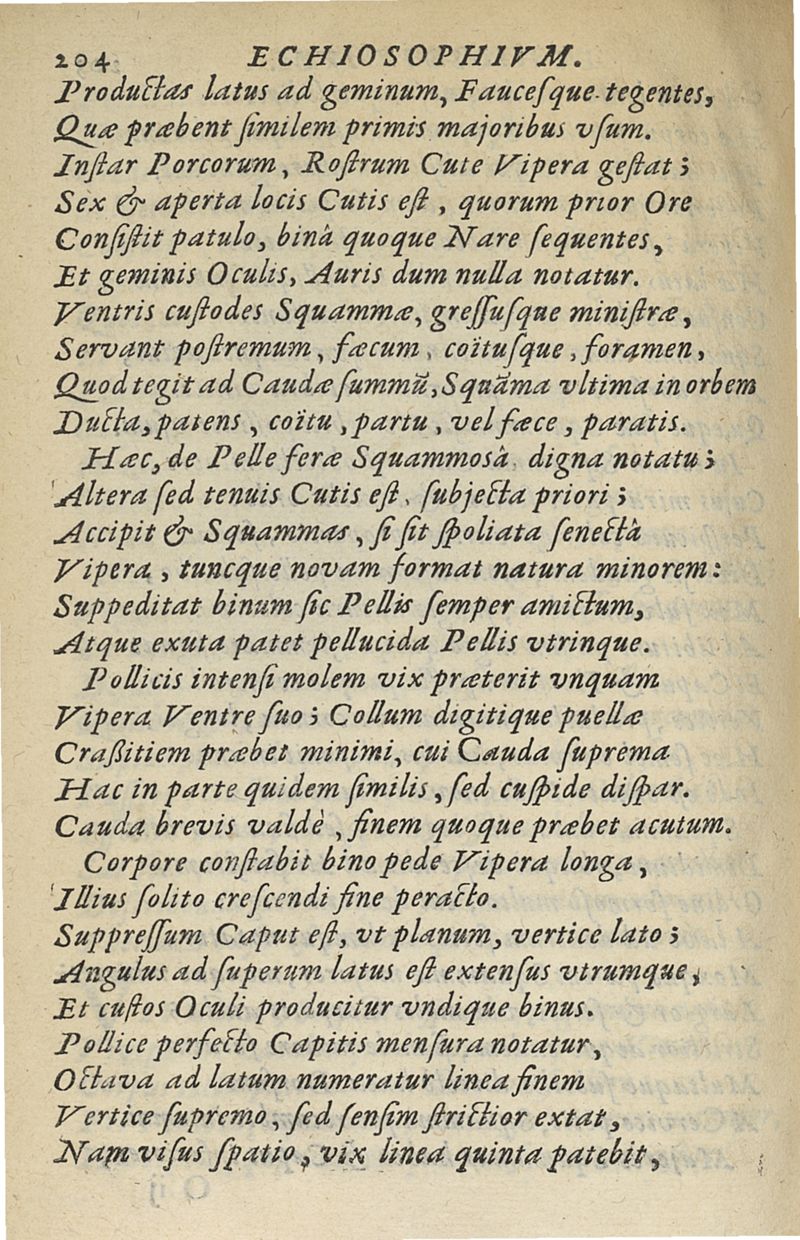 204 ECHIOSOPHIVM.
Productas latus ad geminum, Fauceſque tegentes,
Quæ præbent ſimilem primis majoribus vſum.
Inſtar Porcorum, Roſtrum Cute Vipera geſtat;
Sex & aperta locis Cutis eſt, quorum prior Ore
Conſiſtit patulo, binâ quoque Nare ſequentes,
Et geminis Oculis, Auris dum nulla notatur.
Ventris cuſtodes Squammæ, greſſuſque miniſtræ,
Servant poſtremum, fæcum, coïtuſque, foramen,
Quod tegit ad Caudæ ſummū, Squāma vltima in orbem
Ducta, patens, coïtu, partu, vel fæce, paratis.
Hæc, de Pelle feræ Squammosâ digna notatu;
Altera ſed tenuis Cutis eſt, ſubjecta priori;
Accipit & Squammas, ſi ſit ſpoliata ſenectâ
Vipera, tuncque novam format natura minorem:
Suppeditat binum ſic Pellis ſemper amictum,
Atque exuta patet pellucida Pellis vtrinque.
Pollicis intenſi molem vix præterit vnquam
Vipera Ventre ſuo; Collum digitique puellæ
Craßitiem præbet minimi, cui Cauda ſuprema
Hac in parte quidem ſimilis, ſed cuſpide diſpar.
Cauda brevis valdè, finem quoque præbet acutum.
Corpore conſtabit bino pede Vipera longa,
Illius ſolito creſcendi fine peracto.
Suppreſſum Caput eſt, vt planum, vertice lato;
Angulus ad ſuperum latus eſt extenſus vtrumque,
Et cuſtos Oculi producitur vndique binus.
Pollice perfecto Capitis menſura notatur,
Octava ad latum numeratur linea finem
Vertice ſupremo, ſed ſenſim ſtrictior extat,
Nam viſus ſpatio, vix linea quinta patebit,